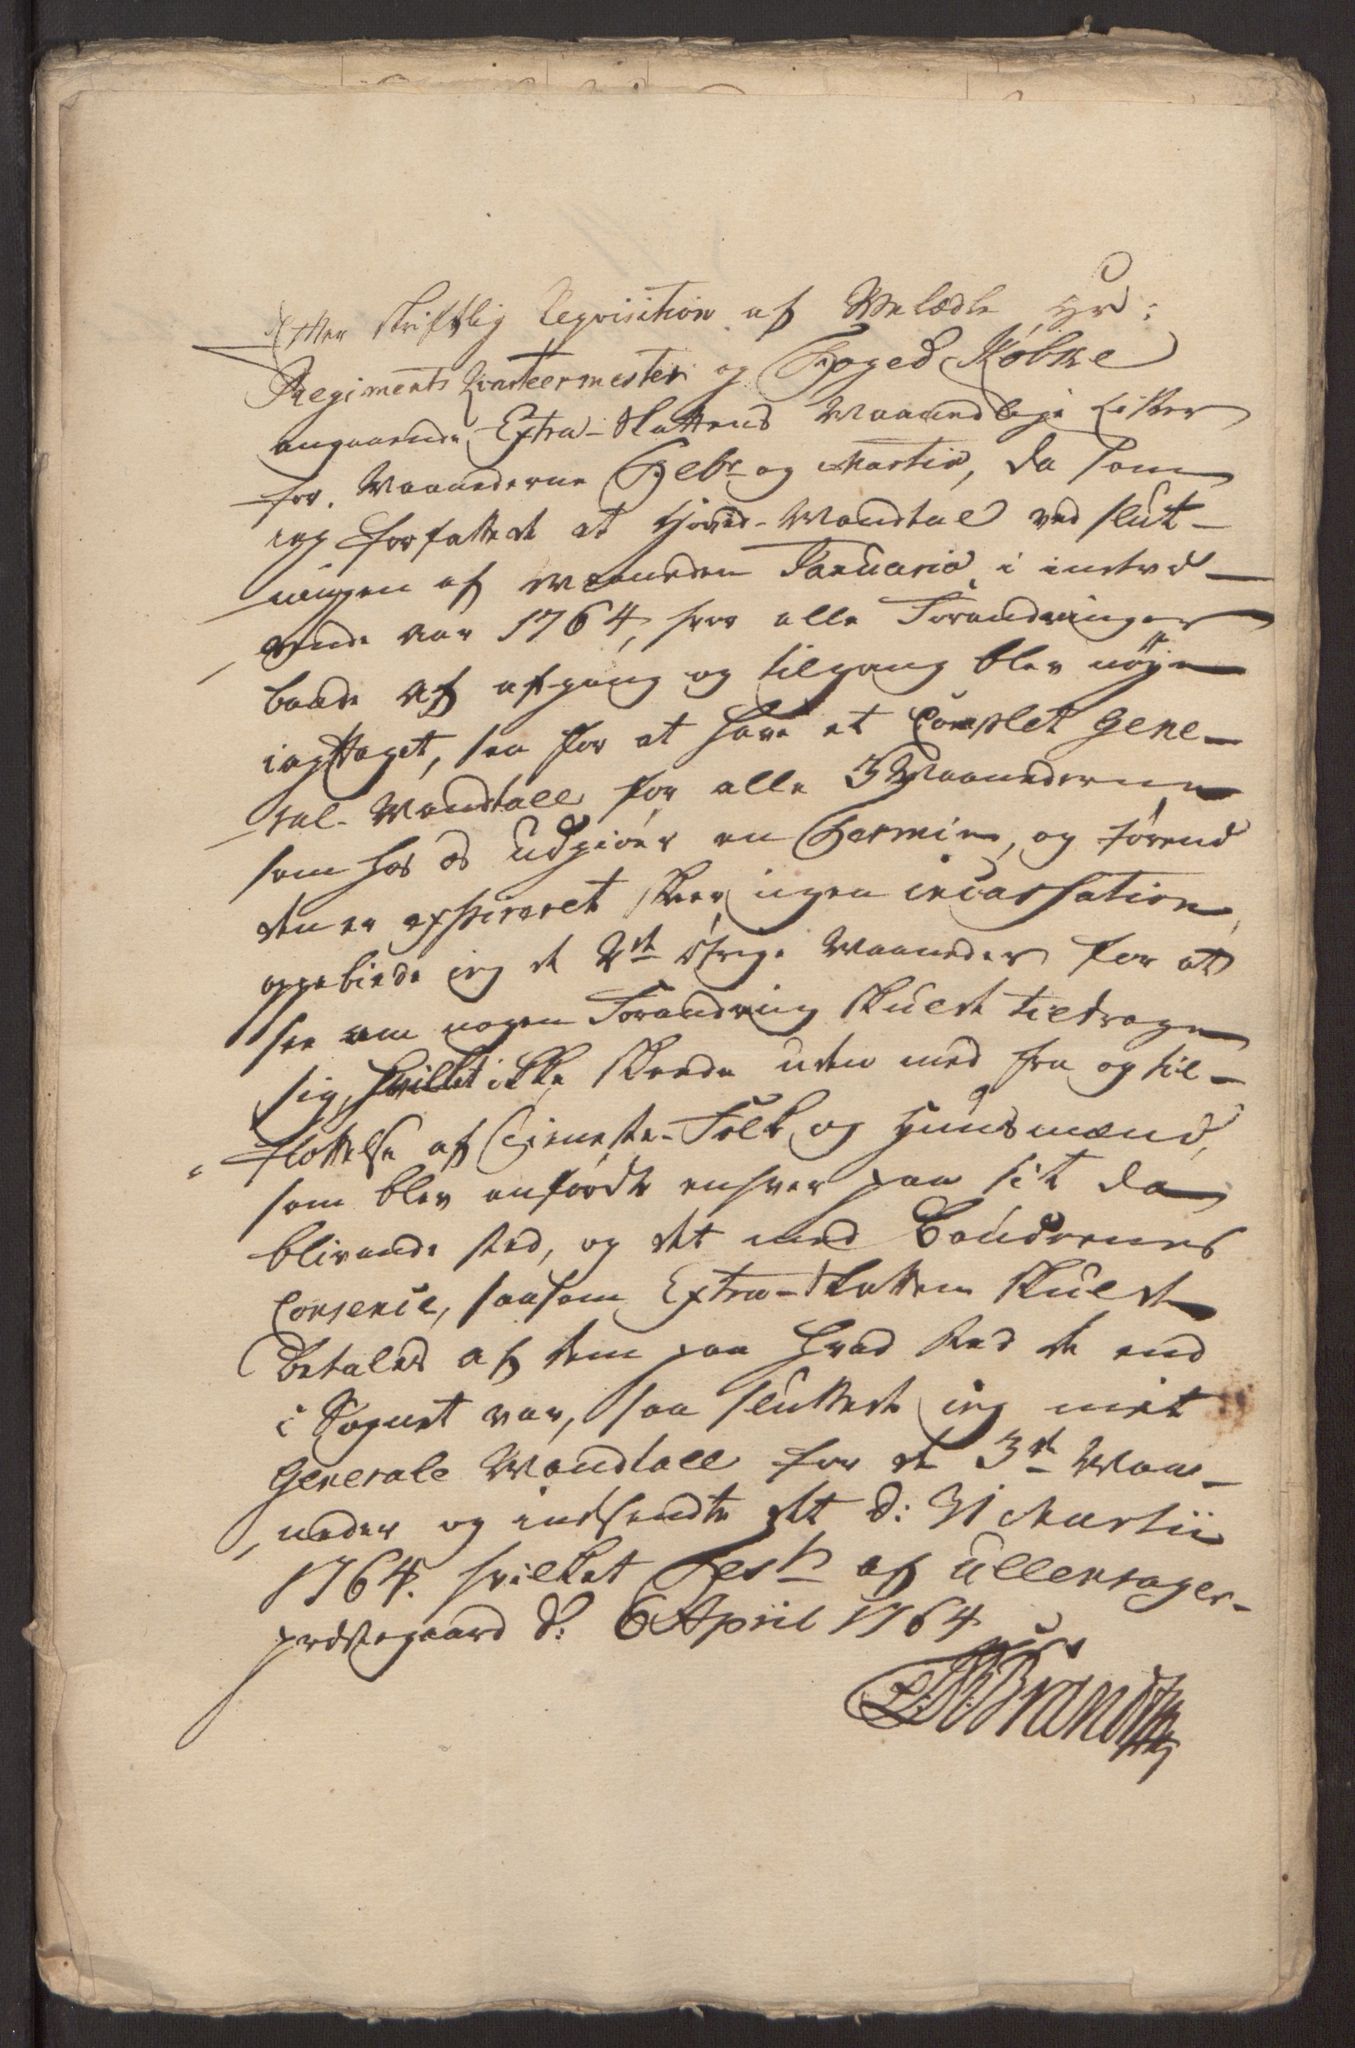 Efter skriftlig Reqvisition af Velædle Hr:
Regiments Qvarteermester og Foged Købke
angaaende Extra-Skattens Maanedlige Lister
for Maanederne Febr og Martio, da som
ieg forfattede et Hoved-Mandtal ved slut-
ningen af Maaneden Januario i indevæ-
rende Aar 1764, hvor alle Forandringer
baade af afgang og tilgang blev nøye
iagttaget, saa for at have et Complet Gene-
ral-Mandtall for alle 3 Maanederne
som hos os udgiør en Termin, og førend
den er exspireret skeer ingen incassation,
oppebiede ieg de 2de øvrige Maaneder for at
see om nogen Forandring skulde tildrage
sig, hvilket ikke skeede uden med fra og til-
flottelse af Tieneste-Folk og Huusmænd,
som blev anførdte enhver paa sit da
blivende sted, og det med Bøndernes
Consence, saasom Extra-Skatten skulde
Betales af dem paa hvad sted de end
i Sognet var, saa sluttede ieg mit
Generale Mandtall for de 3de Maa-
neder og indsendte det d: 31 Martii
1764. hvilket Test af Ullensager-
præstegaard d: 6 April 1764
Brandt